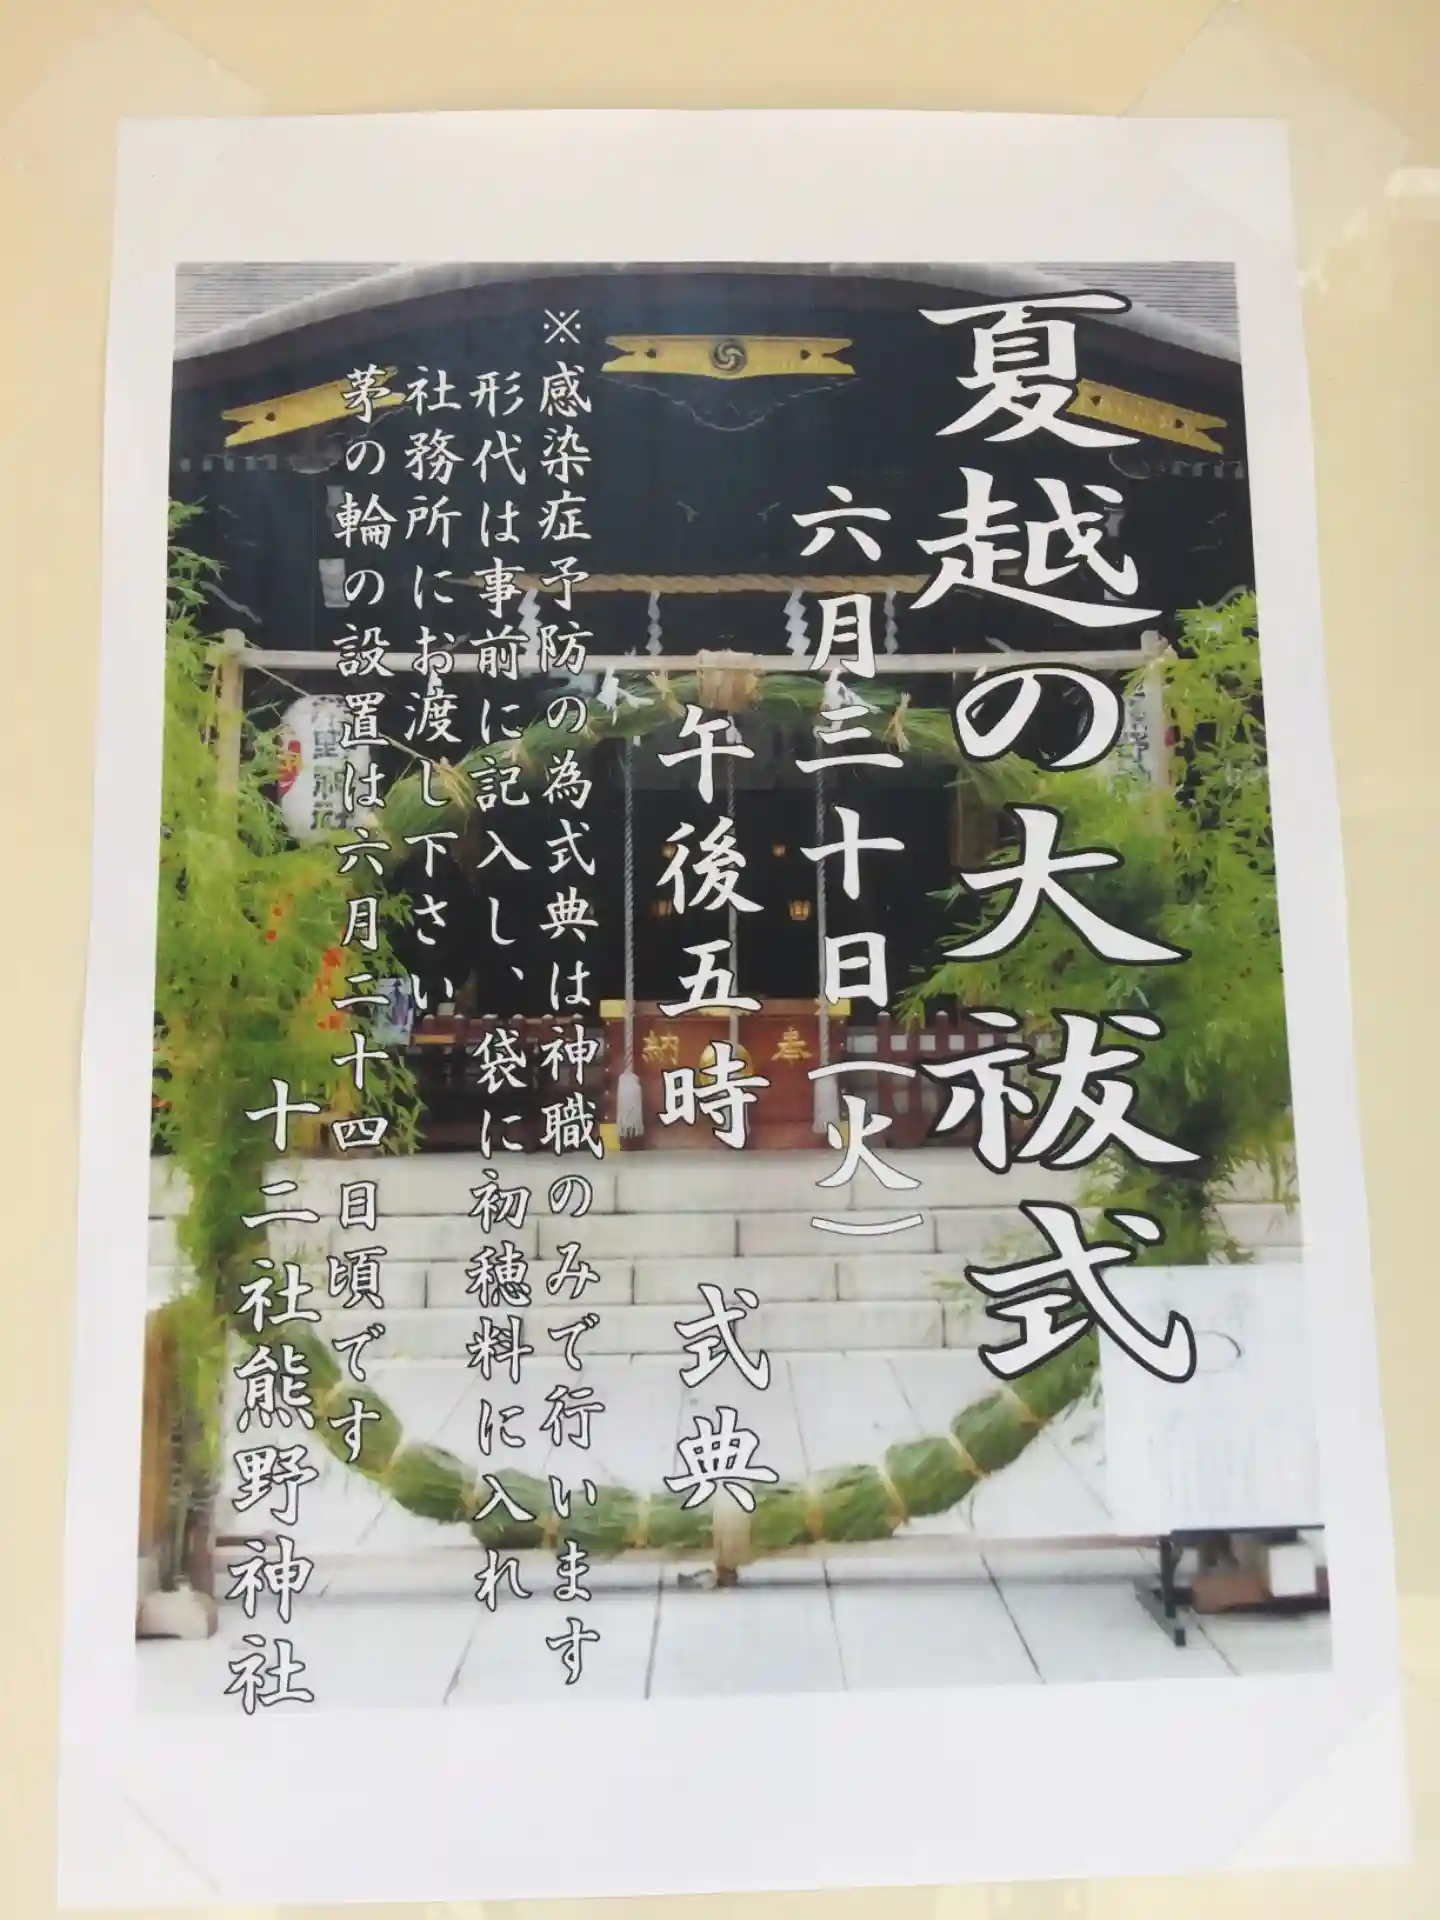 夏越の大祓式
六月三十日(火)
午後五時 式典
※感染症予防の為式典は神職のみで行います
形代は事前に記入し、袋に初穂料に入れ
社務所にお渡し下さい
茅の輪の設置は六月二十四日頃です
十二社熊野神社
奉納